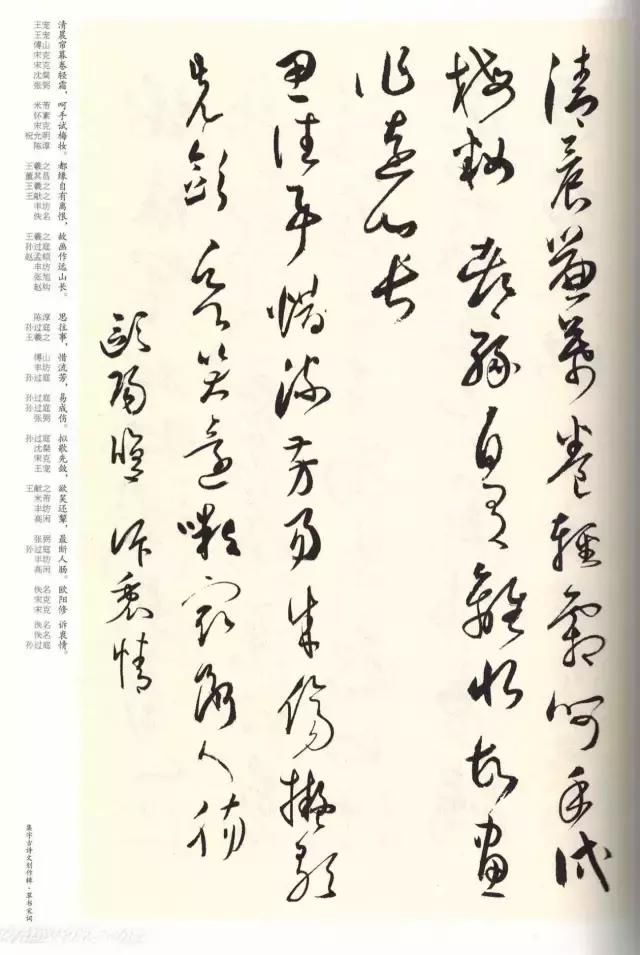 清晨簾幕卷輕霜呵手試
梅妝都緣自有離恨故畫
作遠山長
思往事惜流芳易成傷擬歌
先斂欲笑還顰最斷人腸
歐陽修 訴衷情
清晨帘幕卷轻霜，
王宠 王宠 傅山 宋克 宋克 沈粲 张弼
呵手试梅妆。
米芾 怀素 宋克 祝允明 陈淳
都缘自有离恨，
王羲之 董其昌 王羲之 王献之 丰坊 佚名
故画作远山长。
王羲之 孙过庭 赵孟頫 丰坊 张旭 赵构
思往事，
陈淳 孙过庭 王羲之
惜流芳，
傅山 丰坊 孙过庭
易成伤。
孙过庭 孙过庭 张弼
拟歌先敛，
孙过庭 沈粲 宋克 王宠
欲笑还颦，
王献之 米芾 丰坊 高闲
最断人肠。
张弼 孙过庭 丰坊 高闲
欧阳修
佚名 宋克 宋克
诉衷情。
佚名 佚名 孙过庭
集字古诗文创作辑·草书宋词